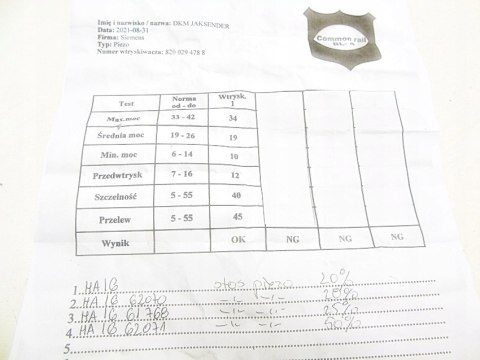 Imię i nazwisko / nazwa: DKM JAKSENDER
Data: 2021-08-31
Firma: Siemens
Typ: Piezo
Numer wtryskiwacza: 829 929 478 8
Common rail
Test Norma od - do Wtrysk. 1
Max.moc 33 - 42 34
Średnia moc 19 - 26 19
Min. moc 6 - 14 10
Przedwtrysk 7 - 16 12
Szczelność 5 - 55 40
Przelew 5 - 55 45
Wynik OK NG NG NG
1. HA IG stos piezo 20%
2. HA IG 62070 -"- -"-
3. HA IG 61768 -"- -"-
4. HA IG 62071 -"- -"-
5.